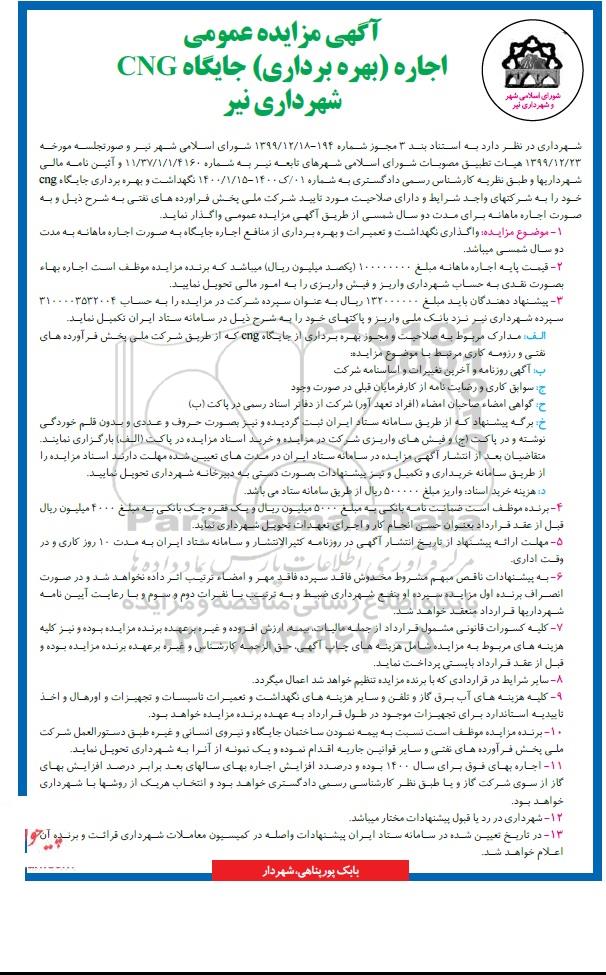 آگهی مزایده عمومی
اجاره (بهره برداری) جایگاه CNG
شهرداری نیر
شورای اسلامی شهر
و شهرداری نیر
شهرداری در نظر دارد به استناد بند ۳ مجوز شماره ۱۹۴-۱۳۹۹/۱۲/۱۸ شورای اسلامی شهر نیر و صورتجلسه مورخه
۱۳۹۹/۱۲/۲۳ هیات تطبیق مصوبات شورای اسلامی شهرهای تابعه نیر به شماره ۱۱/۳۷/۱/۱/۴۱۶۰ و آئین نامه مالی
شهرداریها و طبق نظریه کارشناس رسمی دادگستری به شماره ۰۱/ک/۱۴۰۰-۱۴۰۰/۱/۱۵ نگهداشت و بهره برداری جایگاه cng
خود را به شرکتهای واجد شرایط و دارای صلاحیت مورد تایید شرکت ملی پخش فراورده های نفتی به شرح ذیل و به
صورت اجاره ماهانه برای مدت دو سال شمسی از طریق آگهی مزایده عمومی واگذار نماید.
۱- موضوع مزایده: واگذاری نگهداشت و تعمیرات و بهره برداری از منافع اجاره جایگاه به صورت اجاره ماهانه به مدت
دو سال شمسی میباشد.
۲- قیمت پایه اجاره ماهانه مبلغ ۱۰۰۰۰۰۰۰۰ (یکصد میلیون ریال) میباشد که برنده مزایده موظف است اجاره بهاء
بصورت نقدی به حساب شهرداری واریز و فیش واریزی را به امور مالی تحویل نمایید.
۳- پیشنهاد دهندگان باید مبلغ ۱۳۲۰۰۰۰۰۰ ریال به عنوان سپرده شرکت در مزایده را به حساب ۳۱۰۰۰۰۳۵۳۲۰۰۴
سپرده شهرداری نیر نزد بانک ملی واریز و پاکتهای خود را به شرح ذیل در سامانه ستاد ایران تکمیل نماید.
الف: مدارک مربوط به صلاحیت و مجوز بهره برداری از جایگاه cng که از طریق شرکت ملی پخش فرآورده های
نفتی و رزومه کاری مرتبط با موضوع مزایده:
ب: آگهی روزنامه و آخرین تغییرات و اساسنامه شرکت
ج: سوابق کاری و رضایت نامه از کارفرمایان قبلی در صورت وجود
ح: گواهی امضاء صاحبان امضاء (افراد تعهد آور) شرکت از دفاتر اسناد رسمی در پاکت (ب)
خ: برگه پیشنهاد که از طریق سامانه ستاد ایران ثبت گردیده و نیز بصورت حروف و عددی و بدون قلم خوردگی
نوشته و در پاکت (ج) و فیش های واریزی شرکت در مزایده و خرید اسناد مزایده در پاکت (الف) بارگزاری نمایند.
متقاضیان بعد از انتشار آگهی مزایده در سامانه ستاد ایران در مدت های تعیین شده مهلت دارند اسناد مزایده را
از طریق سامانه خریداری و تکمیل و نیز پیشنهادات بصورت دستی به دبیرخانه شهرداری تحویل نمایید.
د: هزینه خرید اسناد: واریز مبلغ ۵۰۰۰۰۰ ریال از طریق سامانه ستاد می باشد.
۴- برنده موظف است ضمانت نامه بانکی به مبلغ ۵۰۰۰ میلیون ریال و یک فقره چک بانکی به مبلغ ۴۰۰۰ میلیون ریال
قبل از عقد قرارداد بعنوان حسن انجام کار و اجرای تعهدات تحویل شهرداری نماید.
۵- مهلت ارائه پیشنهاد از تاریخ انتشار آگهی در روزنامه کثیرالانتشار و سامانه ستاد ایران به مدت ۱۰ روز کاری و در
وقت اداری.
۶- به پیشنهادات ناقص مبهم مشروط مخدوش فاقد سپرده فاقد مهر و امضاء ترتیب اثر داده نخواهد شد و در صورت
انصراف برنده اول مزایده سپرده او بنفع شهرداری ضبط و به ترتیب با نفرات دوم و سوم و با رعایت آیین نامه
شهرداریها قرارداد منعقد خواهد شد.
۷- کلیه کسورات قانونی مشمول قرارداد از جمله مالیات، بیمه، ارزش افزوده و غیره برعهده برنده مزایده بوده و نیز کلیه
هزینه های مربوط به مزایده شامل هزینه های چاپ آگهی، حق الزحمه کارشناس و غیره برعهده برنده مزایده بوده و
قبل از عقد قرارداد بایستی پرداخت نماید.
۸- سایر شرایط در قراردادی که با برنده مزایده تنظیم خواهد شد اعمال میگردد.
۹- کلیه هزینه های آب برق گاز و تلفن و سایر هزینه های نگهداشت و تعمیرات تاسیسات و تجهیزات و اورهال و اخذ
تاییدیه استاندارد برای تجهیزات موجود در طول قرارداد به عهده برنده مزایده خواهد بود.
۱۰- برنده مزایده موظف است نسبت به بیمه نمودن ساختمان جایگاه و نیروی انسانی و غیره طبق دستورالعمل شرکت
ملی پخش فرآورده های نفتی و سایر قوانین جاریه اقدام نموده و یک نمونه از آنرا به شهرداری تحویل نماید.
۱۱- اجاره بهای فوق برای سال ۱۴۰۰ بوده و درصدد افزایش اجاره بهای سالهای بعد برابر درصد افزایش بهای
گاز از سوی شرکت گاز و یا طبق نظر کارشناسی رسمی دادگستری خواهد بود و انتخاب هریک از روشها با شهرداری
خواهد بود.
۱۲- شهرداری در رد یا قبول پیشنهادات مختار میباشد.
۱۳- در تاریخ تعیین شده در سامانه ستاد ایران پیشنهادات واصله در کمیسیون معاملات شهرداری قرائت و برنده آن
اعلام خواهد شد.
بابک پورپناهی، شهردار